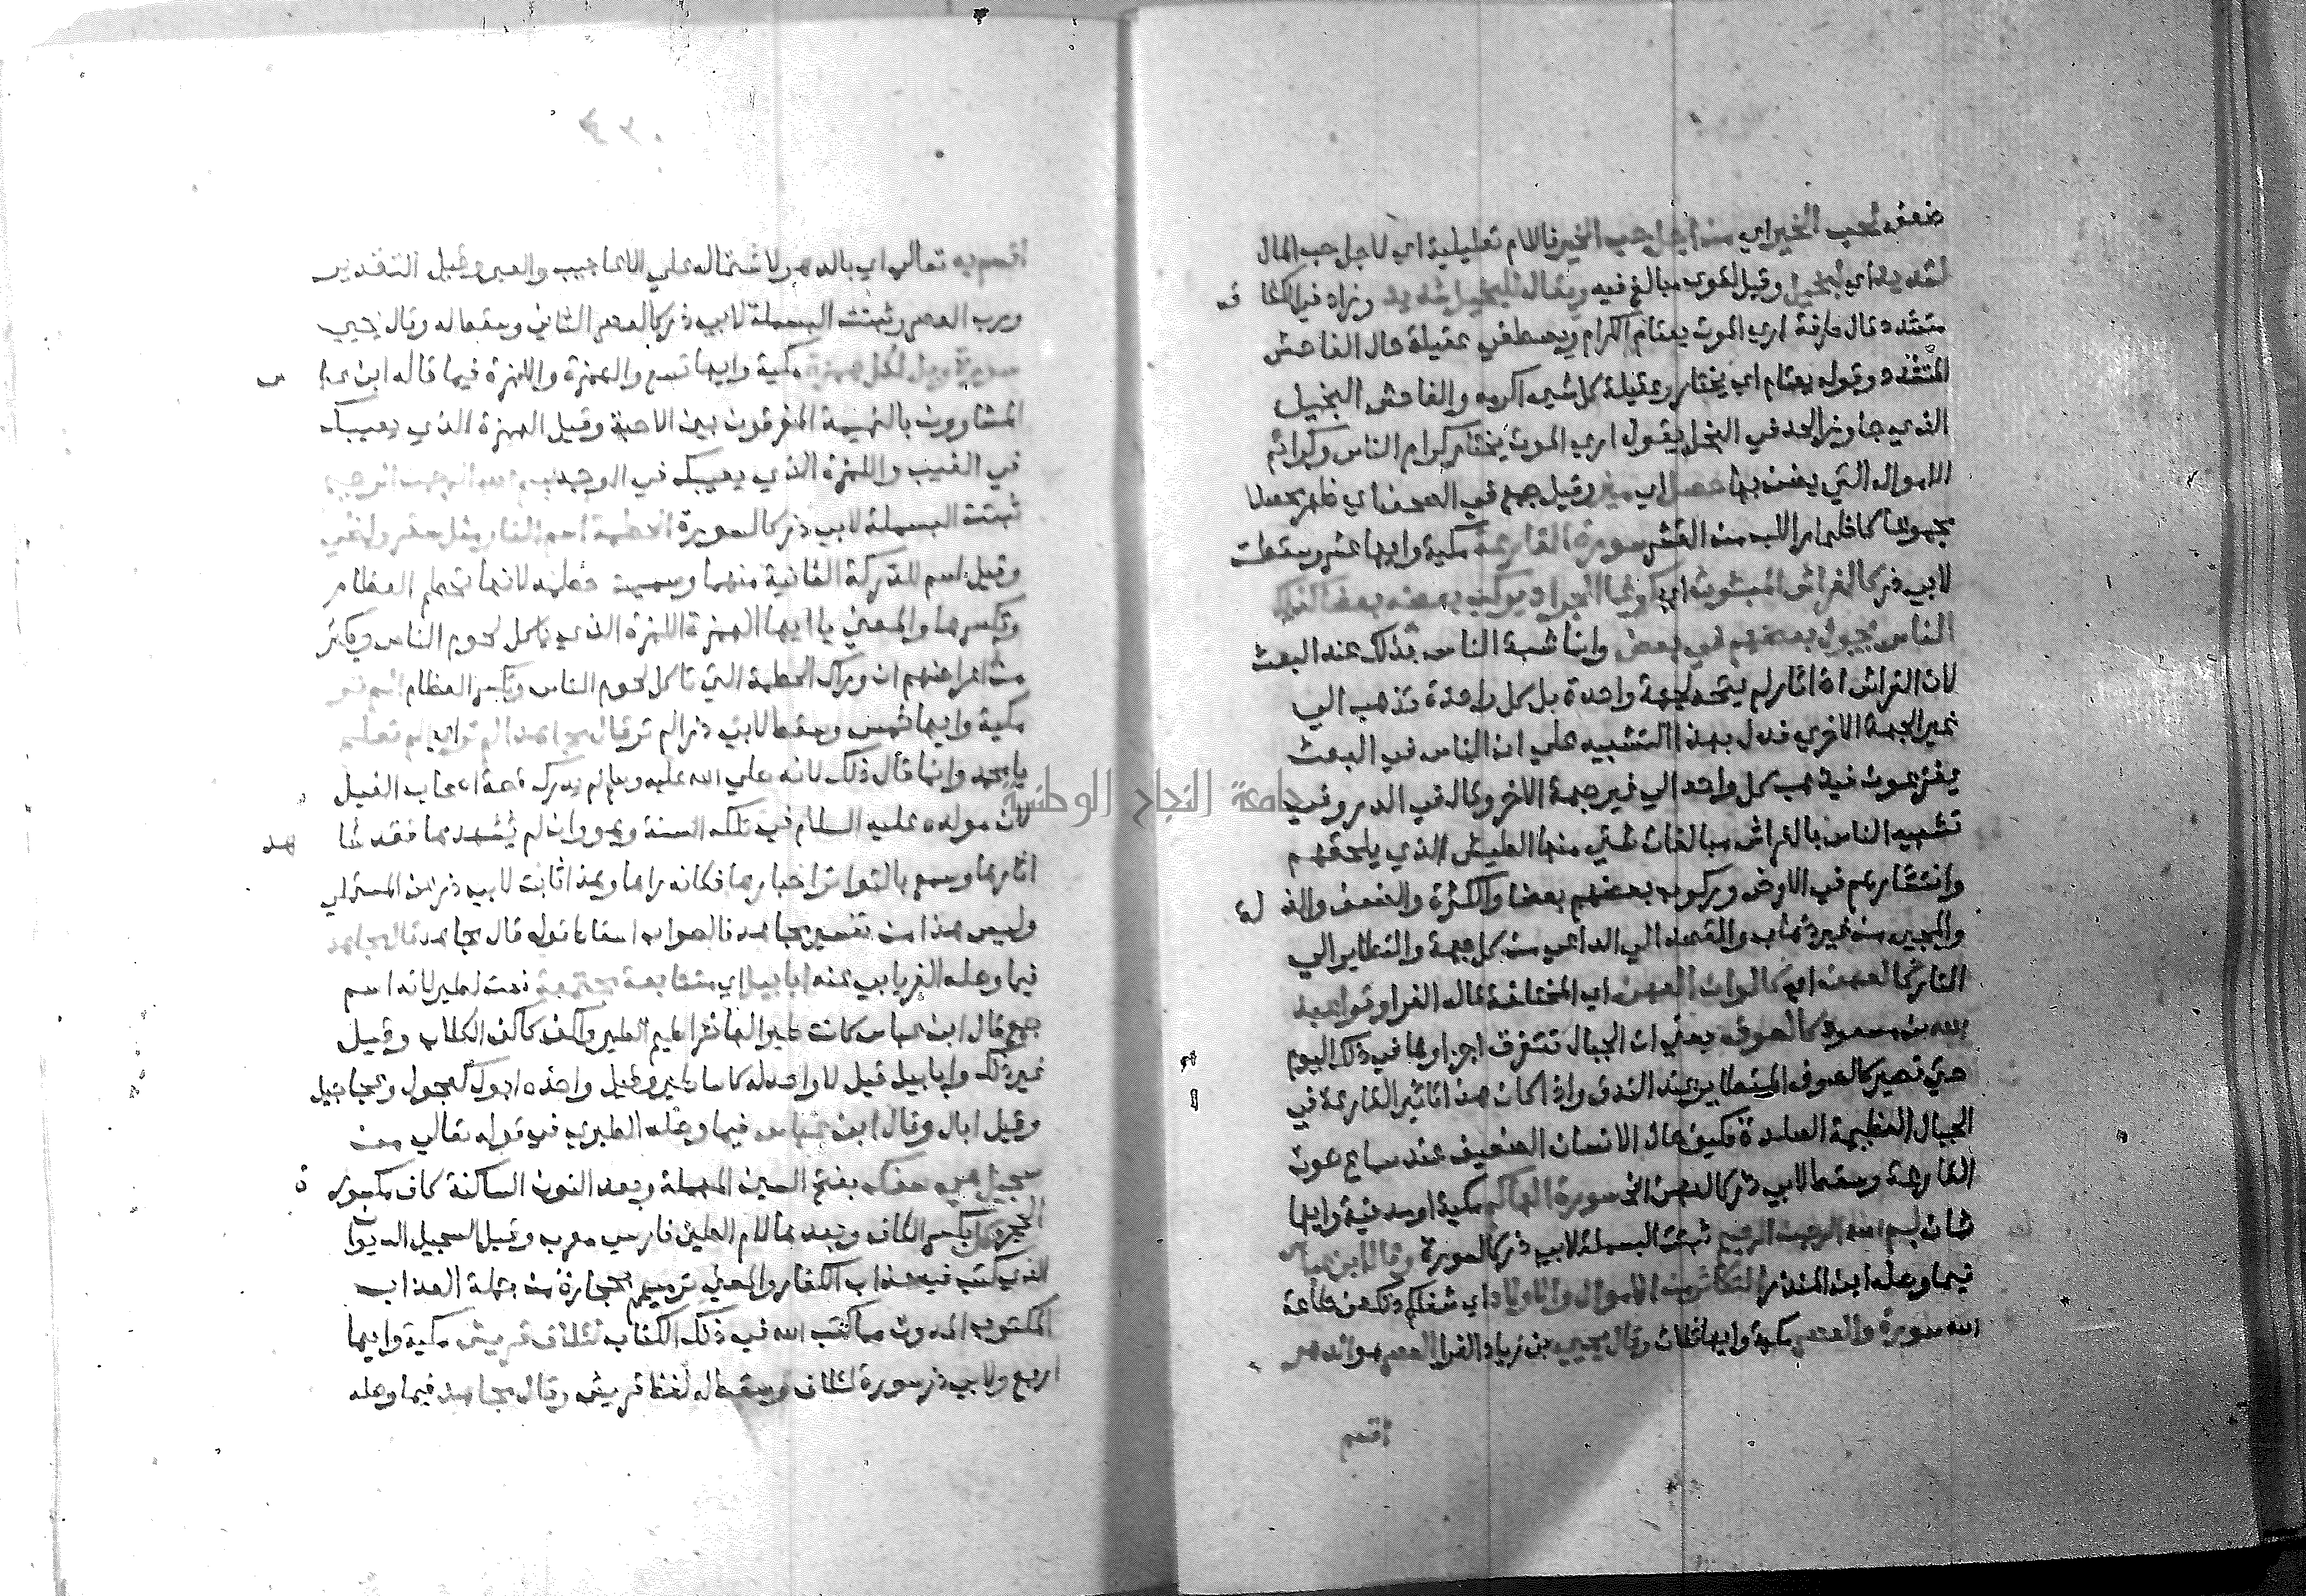 ضعف لحب الخير اي من اجل حب الخير فاللام تعليلية اي لاجل حب المال
لشديد اي لبخيل وقيل لقوي مبالغ فيه ويقال للبخيل شديد وزاد في الكشاف
متشدد قال طرفة اري الموت يعتام الكرام ويصطفي عقيلة مال الفاحش
المتشدد وقوله يعتام اي يختار وعقيلة كل شي اكرمه والفاحش البخيل
الذي جاوز الحد في البخل يقول اري الموت يختار كرام الناس وكرائم
الاموال التي يضن بها حصل اي ميز وقيل جمع في الصحف اي ظهر محصلا
مجموعا كاظهار اللب من القشر سورة القارعة مكية وايها عشر وسقطت
لابي ذر كالفراش المبثوث اي كغوغا الجراد يركب بعضه بعضا كذلك
الناس يجول بعضهم في بعض وانما شبه الناس بذلك عند البعث
لان الفراش اذا ثار لم يتجه لجهة واحدة بل كل واحدة تذهب الي
غير الجهة الاخري فدل بهذا التشبيه علي ان الناس في البعث
يفزعون فيذهب كل واحد الي غير جهة الاخر وقال في الدر وفي
تشبيه الناس بالفراش مبالغات شتي منها الطيش الذي يلحقهم
وانتشارهم في الارض وركوب بعضهم بعضا والكثرة والضعف والذلة
والمجي من غير ذهاب والقصد الي الداعي من كل جهة والتطاير الي
النار كالعهن اي كالوان العهن اي المختلفة قاله الفرا وقرا عبد
الله بن مسعود كالصوف يعني ان الجبال تتفرق اجزاوها في ذلك اليوم
حتي تصير كالصوف المتطاير عند الندف واذا كان هذا تاثير القارعة في
الجبال العظيمة الصلدة فكيف حال الانسان الضعيف عند سماع صوت
القارعة وسقط لابي ذر كالعهن الخ سورة الهاكم مكية او مدنية وايها
ثمان بسم الله الرحمن الرحيم ثبتت البسملة لابي ذر كالسورة وقال ابن عباس
فيما وصله ابن المنذر التكاثر من الاموال والاولاد اي شغلكم ذلك عن طاعة
الله سورة والعصر مكية وايها ثلاث وقال يحيي بن زياد الفرا العصر هو الدهر
اقسم
اقسم به تعالي اي بالدهر لاشتماله علي الاعاجيب والعبر وقيل التقدير
ورب العصر وثبتت البسملة لابي ذر كالعصر الثاني وسقط له وقال يحيي
سورة ويل لكل همزة مكية وايها تسع والهمزة واللمزة فيما قاله ابن عباس
المشاوون بالنميمة المفرقون بين الاحبة وقيل الهمزة الذي يعيبك
في الغيب واللمزة الذي يعيبك في الوجه بسم الله الرحمن الرحيم
ثبتت البسملة لابي ذر كالسورة الحطمة اسم النار مثل سقر ولظي
وقيل اسم للدركة الثانية منها وسميت حطمة لانها تحطم العظام
وتكسرها والمعني يا ايها الهمزة اللمزة الذي ياكل لحوم الناس ويكسر
من اعراضهم ان وراك الحطمة التي تاكل لحوم الناس وتكسر العظام الم تر
مكية وايها خمس وسقط لابي ذر الم تر قال مجاهد الم تر اي الم تعلم
يا محمد وانما قال ذلك لانه صلي الله عليه وسلم لم يدرك قصة اصحاب الفيل
لان مولده عليه السلام في تلك السنة وهو وان لم يشهدها فقد شاهد
اثارها وسمع بالتواتر اخبارها فكانه راها وهذا ثابت لابي ذر عن المستملي
وليس هذا من تفسير مجاهد فالصواب اسقاط قوله قال مجاهد قال مجاهد
فيما وصله الفريابي عنه ابابيل اي متتابعة مجتمعة نعت لطير لانه اسم
جمع قال ابن عباس كانت طيرا لها خراطيم الطير واكف كاكف الكلاب وقيل
غير ذلك وابابيل قيل لا واحد له كاساطير وقيل واحده ابول كعجول وعجاجيل
وقيل ابال وقال ابن عباس فيما وصله الطبري في قوله تعالي من
سجيل هي سنك بفتح السين المهملة وبعد النون الساكنة كاف مكسورة
الحجر وكل بكسر الكاف وبعدها لام الطين فارسي معرب وقيل السجيل الديوان
الذي كتب فيه عذاب الكفار والمعني ترميهم بحجارة من جملة العذاب
المكتوب المدون مما كتب الله في ذلك الكتاب لئلاف قريش مكية وايها
اربع ولابي ذر سورة لئلاف وسقط له لفظ قريش وقال مجاهد فيما وصله